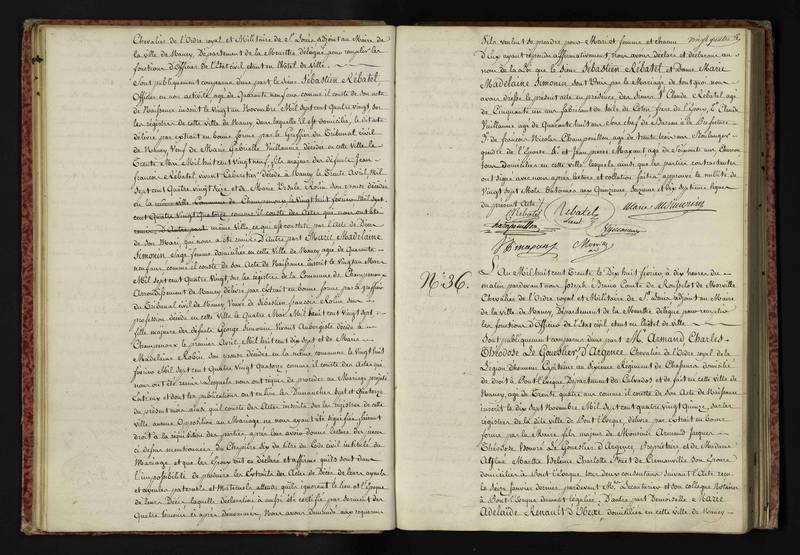 Chevalier de l'Ordre royal et Militaire de St Louis adjoint au Maire de
la ville de Nancy, Département de la Meurthe délégué pour remplir les
fonctions d'Officier de l'Etat civil, etant en l'hôtel de ville.
Sont publiquement comparus d'une part le Sieur Sébastien Rébatel,
Officier en non activité, agé de Quarante neuf ans comme il conste de son acte
de Naissance inscrit le vingt un Novembre Mil sept cent Quatre vingt, sur
les régistres de cette ville de Nancy dans laquelle il est domicilié, le dit acte
délivré par extrait en bonne forme par le Greffier du Tribunal civil
de Nancy Veuf de Marie Gabrielle Vuillaume décédée en cette ville le
Trente Mai Mil huit cent Vingt neuf, fils majeur des défunts Jean
François Rébatel vivant décédé à Nancy le Trente Avril Mil
Sept cent Quatre vingt et de Marie Ursule Robin son epouse décédée
en la même ville Commune de Champenoux, le vingt huit fevrier Mil sept
cent Quatre Vingt Quatorze comme il conste des Actes qui nous ont été
remis D'autre part même ville ce qui est constaté par l'Acte de Décès
de son Mari, qui nous a été remis. D'autre part Marie Madelaine
Simonin agée domiciliée en cette Ville de Nancy agée de Quarante
neuf ans, comme il conste de son Acte de Naissance inscrit le vingt un Mars
Mil Sept cent Quatre Vingt, sur les régistres de la Commune de Champenoux
Arrondissement de Nancy délivré par extrait en bonne forme par le greffier
du Tribunal civil de Nancy Veuve de Sébastien François Robin, sans
profession décédé en cette Ville le Quatre Mai Mil huit cent Vingt sept
fille majeure des défunts George Simonin Vivant Aubergiste décédé à
Champenoux, le premier Avril Mil huit cent dix sept et de Marie
Madelaine Robin, son epouse décédée en la même commune le vingt huit
fevrier Mil Sept cent Quatre Vingt Quatorze comme il conste des Actes qui
nous ont été remis. Lesquels nous ont requis de procéder au Mariage projetté
entr'eux et dont les publications ont eu lieu les Dimanches Sept et Quatorze
du présent mois ainsi qu'il conste des Actes inscrits sur les régistres de cette
ville. Aucune Opposition au Mariage, ne nous ayant été signifiée, faisant
droit à la réquisition des parties après leur avoir donné lecture des pièces
ci dessus mentionnées, du Chapitre Six du titre du Code civil intitulé du
Mariage et que les Epoux ont eu déclaré et affirmé qu'ils sont dans
l'impossibilité de produire les Extraits des Actes de Décès de leurs ayeuls
et ayeules paternels et Maternels attendu qu'ils ignorent le lieu et l'époque
de leurs Décès laquelle Déclaration a aussi été certifiée par serment des
Quatre témoins ci après dénommés, Nous avons demandé aux requérans
vingt quatre
S'ils veulent se prendre pour Mari et femme et chacun
D'eux ayant répondu affirmativement, Nous avons déclaré et déclarons au
nom de la Loi que le Sieur Sébastien Rébatel et Dame Marie
Madelaine Simonin, sont Unis par le Mariage. de tout quoi nous
avons dressé le présent acte en présence des Sieurs Claude Rébatel agé
de Cinquante un ans fabricant de toile de Coton frère de l'Epoux, Claude
Vuillaume agé de Quarante huit ans chef de Bureau à la Préfecture
Sr de François Nicolas Champouillon, agé de trente trois ans Boulanger
gendre de l'Epouse Et Jean pierre Mozant agé de Soixante ans Charron
tous domiciliés en cette ville, lesquels ainsi que les parties contractantes
ont signé avec nous après lecture et collation faites, approuvé la nullité de
Vingt sept Mots Batonnés aux Quinzième, Seizième et Dix Septième lignes
du présent Acte.
Rebatel Rebatel Marie M Simonin
Lieut
Vuillaume
No. 36.
L'An Mil huit cent Trente le Dix huit fevrier à dix heures du
matin pardevant nous Joseph Bruno Comte de Morville
Chevalier de l'Ordre royal et Militaire de St Louis adjoint au Maire
de la Ville de Nancy, Département de la Meurthe délégué pour remplir
les fonctions d'Officier de l'Etat civil, etant en l'hôtel de ville
Sont publiquement comparus d'une part Mr. Armand Charles
Théodose Le Gouëslier D'Argence Chevalier de l'Ordre royal de la
Legion d'honneur, Capitaine au Sixième Régiment de Chasseurs domicilié
de droit à Pont l'Evêque Département du Calvados et de fait en cette ville de
Nancy, agé de Trente quatre ans comme il conste de son Acte de Naissance
inscrit le dix sept Novembre Mil Sept cent quatre vingt Quinze, sur les
régistres de la dite ville de Pont l'Evêque, délivré par extrait en bonne
forme par le Maire fils majeur de Monsieur Armand Jacques
Théodose Honoré Le Gouëslier d'Argence, Propriétaire et de Madame
Aglaé Marthe Helene Charlotte Piret de Cernanville Son Epouse
domiciliés à Pont l'Evêque, tous deux consentants suivant l'Acte reçu
le Seize Janvier dernier pardevant Me. et son collègue Notaires
à Pont l'Evêque dument légalisé. D'autre part Demoiselle Marie
Adelaïde Renault D'Ubexi, domiciliée en cette ville de Nancy